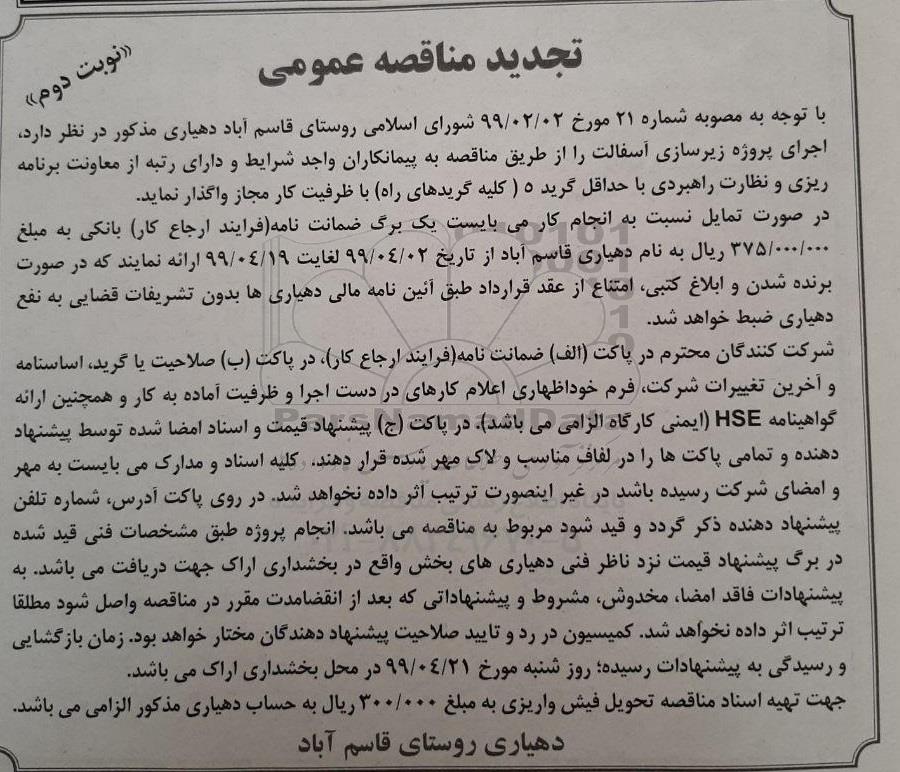 تجدید مناقصه عمومی
«نوبت دوم»
با توجه به مصوبه شماره ۲۱ مورخ ۹۹/۰۲/۰۲ شورای اسلامی روستای قاسم آباد دهیاری مذکور در نظر دارد،
اجرای پروژه زیرسازی آسفالت را از طریق مناقصه به پیمانکاران واجد شرایط و دارای رتبه از معاونت برنامه
ریزی و نظارت راهبردی با حداقل گرید ۵ ( کلیه گریدهای راه) با ظرفیت کار مجاز واگذار نماید.
در صورت تمایل نسبت به انجام کار می بایست یک برگ ضمانت نامه(فرایند ارجاع کار) بانکی به مبلغ
۳۷۵/۰۰۰/۰۰۰ ریال به نام دهیاری قاسم آباد از تاریخ ۹۹/۰٤/۰۲ لغایت ۹۹/۰٤/۱۹ ارائه نمایند که در صورت
برنده شدن و ابلاغ کتبی، امتناع از عقد قرارداد طبق آئین نامه مالی دهیاری ها بدون تشریفات قضایی به نفع
دهیاری ضبط خواهد شد.
شرکت کنندگان محترم در پاکت (الف) ضمانت نامه(فرایند ارجاع کار)، در پاکت (ب) صلاحیت یا گرید، اساسنامه
و آخرین تغییرات شرکت، فرم خوداظهاری اعلام کارهای در دست اجرا و ظرفیت آماده به کار و همچنین ارائه
گواهینامه HSE (ایمنی کارگاه الزامی می باشد). در پاکت (ج) پیشنهاد قیمت و اسناد امضا شده توسط پیشنهاد
دهنده و تمامی پاکت ها را در لفاف مناسب و لاک مهر شده قرار دهند. کلیه اسناد و مدارک می بایست به مهر
و امضای شرکت رسیده باشد در غیر اینصورت ترتیب اثر داده نخواهد شد. در روی پاکت آدرس، شماره تلفن
پیشنهاد دهنده ذکر گردد و قید شود مربوط به مناقصه می باشد. انجام پروژه طبق مشخصات فنی قید شده
در برگ پیشنهاد قیمت نزد ناظر فنی دهیاری های بخش واقع در بخشداری اراک جهت دریافت می باشد. به
پیشنهادات فاقد امضا، مخدوش، مشروط و پیشنهاداتی که بعد از انقضامدت مقرر در مناقصه واصل شود مطلقا
ترتیب اثر داده نخواهد شد. کمیسیون در رد و تایید صلاحیت پیشنهاد دهندگان مختار خواهد بود. زمان بازگشایی
و رسیدگی به پیشنهادات رسیده؛ روز شنبه مورخ ۹۹/۰٤/۲۱ در محل بخشداری اراک می باشد.
جهت تهیه اسناد مناقصه تحویل فیش واریزی به مبلغ ۳۰۰/۰۰۰ ریال به حساب دهیاری مذکور الزامی می باشد.
دهیاری روستای قاسم آباد
ParsNamadData